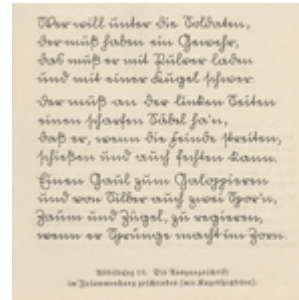 Wer will unter die Soldaten,
der muß haben ein Gewehr,
das muß er mit Pulver laden
und mit einer Kugel schwer.
Der muß an der linken Seiten
einen scharfen Säbel ha'n,
daß er, wenn die Feinde streiten,
schießen und auch fechten kann.
Einen Gaul zum Galoppieren
und von Silber auch zwei Spor'n,
Zaum und Zügel, zu regieren,
wenn er Sprünge macht im Zorn.
Die Ausgangsschrift
im Zusammenhang geschrieben (mit Kugelspitzfeder).